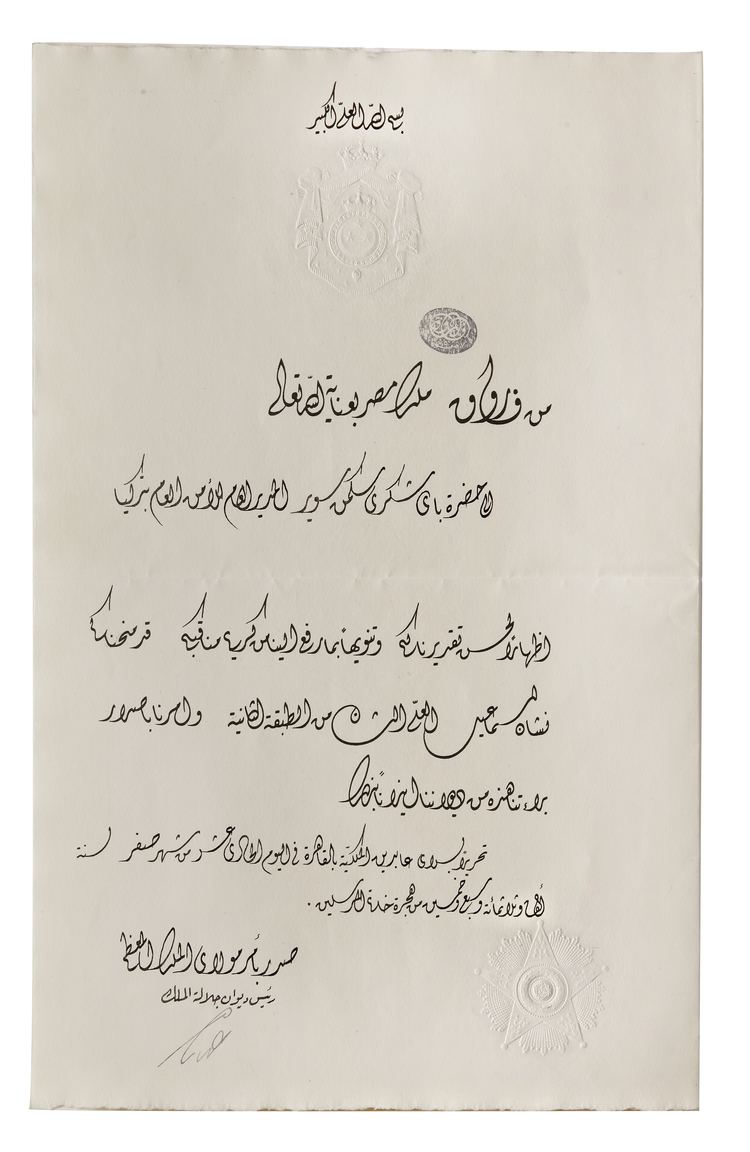 بسم الله العليّ الكبير
من فاروق ملك مصر بعناية الله تعالى
إلى حضرة باى شكرى سوكمن سوير المدير العام للأمن العام بتركيا
إظهارًا لحسن تقديرنا لكم وتنويهًا بما رفع إلينا من كريم مناقبكم قد منحناكم
نشان إسماعيل العليّ الشان من الطبقة الثانية وأمرنا بإصدار
براءتنا هذه من ديواننا إيذانًا بذلك
تحريرًا بسراى عابدين الملكيّة بالقاهرة فى اليوم الحادى عشر من شهر صفر لسنة
ألف وثلاثمائة وسبع وخمسين من هجرة خاتم المرسلين .
صدر بأمر مولاى الملك المعظم
رئيس ديوان جلالة الملك